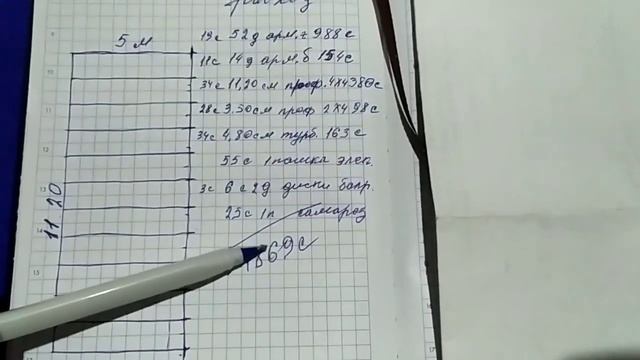 5 м
11 20
19с 52д арм. z 988 с
11с 14д арм. б 154с
34с 11,20 см проф. 4х4 380с
28с 3.50см проф 2х4.98с
34с 4,80см турб. 163 с
55с 1пошка элек.
3с 6 с 2д диски болг.
25с 1п
1869с